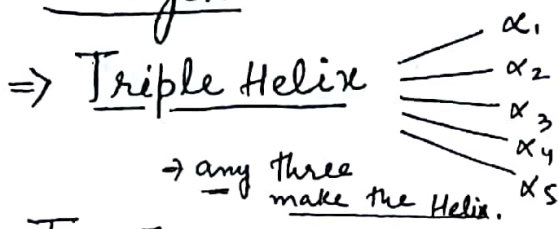 ⇒ Triple Helix
α1
α2
α3
α4
α5
→ any three
make the Helix.